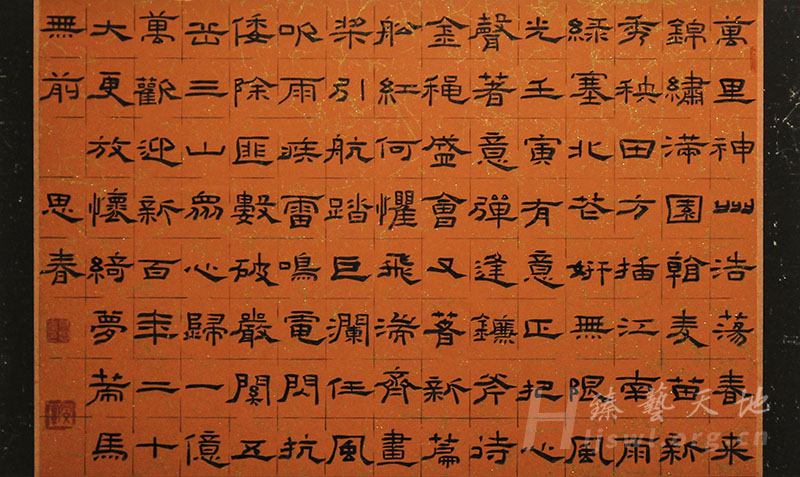 萬里神州浩蕩春來
錦繡滿園翰麦苗新
秀秧田方插江南雨
緑塞北花妍無限風
光壬寅有意正把心
聲著意彈逢鐮斧待
金穐盛會又著新篇
船紅何懼飛湍齊畫
槳引航踏巨瀾任風
吹雨疾雷鳴電閃抗
倭除匪數破嚴関五
岳三山眾心歸一億
萬歡迎新百年二十
大更放懷綺夢策馬
無前 思春
臻藝天地